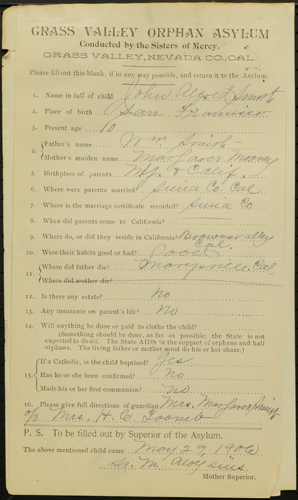 GRASS VALLEY ORPHAN ASYLUM
Conducted by the Sisters of Mercy.
GRASS VALLEY, NEVADA CO., CAL.
Please fill out this blank, if in any way possible, and return it to the Asylum.
1. Name in full of child John Alfred Smith
2. Place of birth San Francisco
3. Present age 10
4. Father's name Wm Smith
Mother's maiden name Margaret
5. Birthplace of parents & Calif.
6. Where were parents married? Co. Cal
7. Where is the marriage certificate recorded? Co
8. When did parents come to California?
9. Where do, or did they reside in California? Brownsvalley
Cal.
10. Were their habits good or bad? Good
11. Where did father die? Marysville. Cal
Where did mother die?
12. Is there any estate? No
13. Any insurance on parent's life? No
14. Will anything be done to clothe the child?
(Something should be done, as far as possible; the State is not
expected to do all. The State AIDS in the support of orphans and half
orphans. The living father or mother must do his or her share.)
15. If a Catholic, is the child baptized? Yes
Has he or she been confirmed? No
Made his or her first communion? no
16. Please give full directions of guardian Mrs. Margaret Smith
c/o Mrs. H. C. Toomb
P. S. To be filled out by Superior of the Asylum.
The above mentioned child came May 29, 1906
Sr. M. Aloysius
Mother Superior.